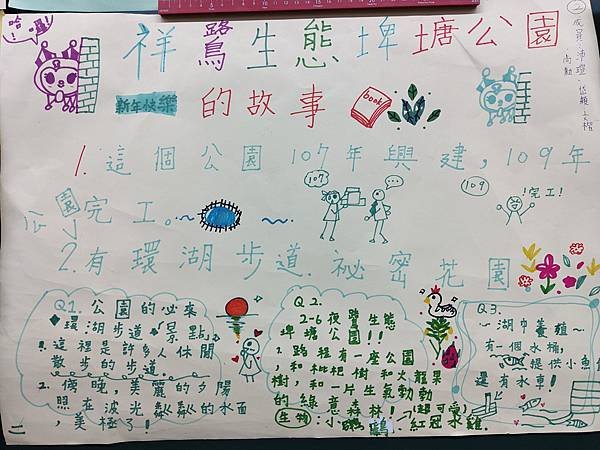 哈.嘍!
祥鷺生態埤塘公園
新年快樂
的故事
book
②成員:沛
1.這個公園107年興建,109年
公園完工。
107
...
109
!完工!
2.有環湖步道.祕密花園
Q1.公園的必來
◆環湖步道◆景點
1.這裡是許多人休閒
散步的步道。
2.傍晚,美麗的夕陽
照在波光粼粼的水面
,美極了!
Q2.
2-6夜鷺生態
埤塘公園!!
1.路程有一座公園
,和枇杷樹和火龍果
樹,和一片生氣勃勃
的綠意森林!(超可愛)
生物:小鸊鷉、紅冠水雞.
Q3.
~湖巾蔓殖~
有一個水桶,
提供小魚
還有水車!
二